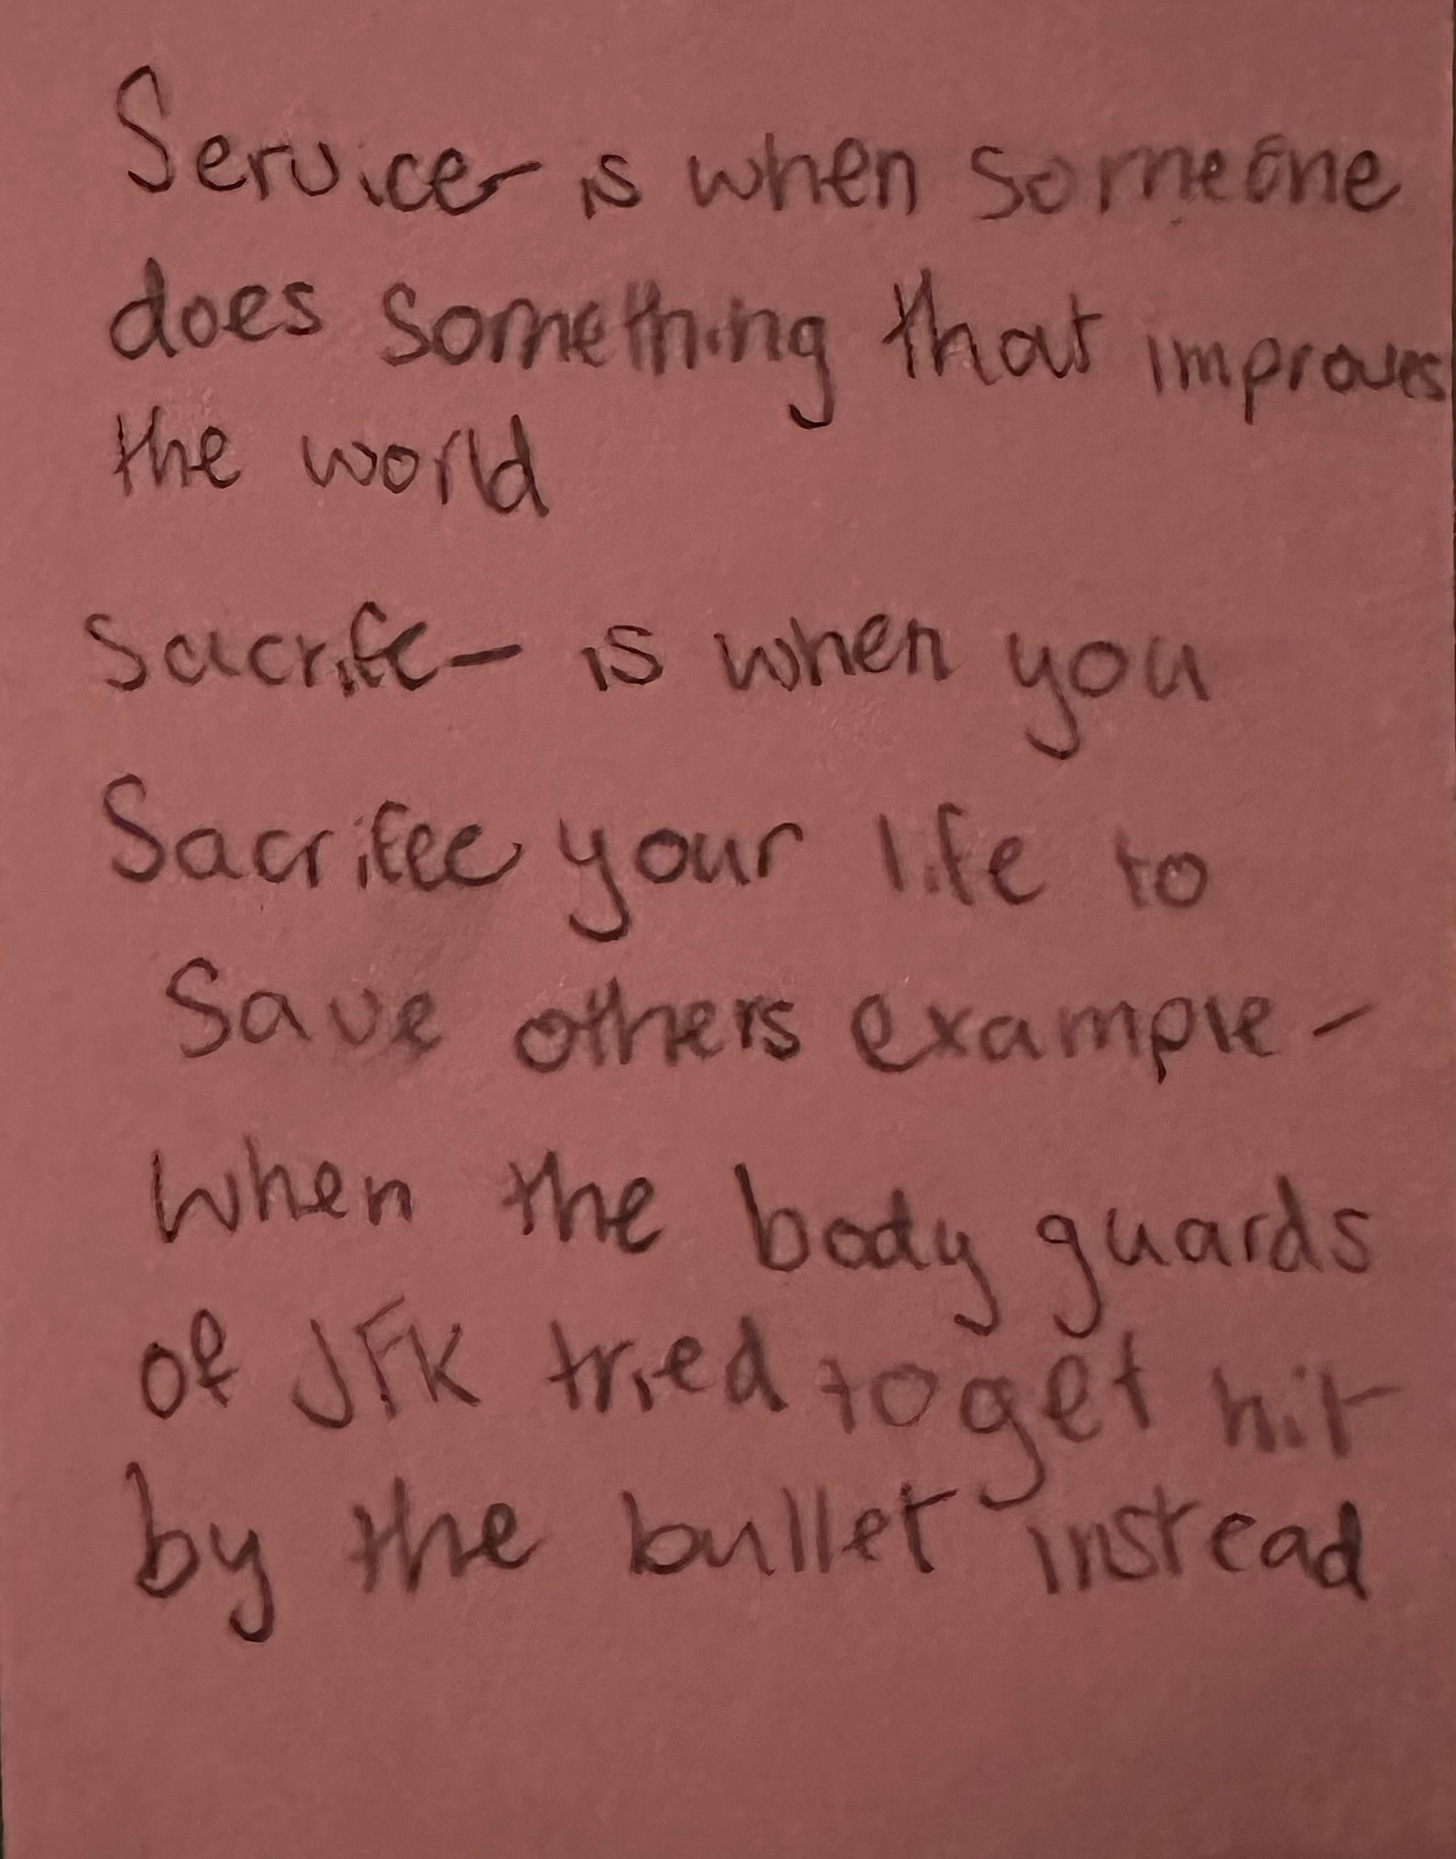 Service- is when someone
does something that improves
the world
Sacrife- is when you
Sacrifee your life to
Save others example-
when the body guards
of JFK tried to get hit
by the bullet instead